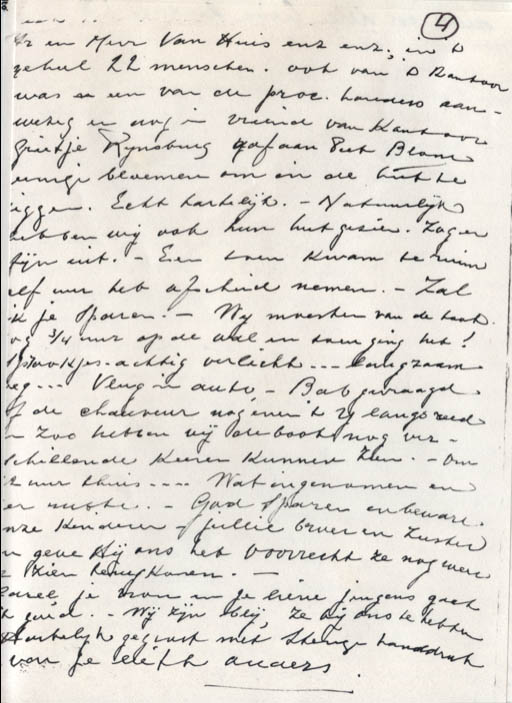 4
en Mevr Van Huis enz enz, in 't
geheel 22 menschen. ook van 't Kantoor
was er een van de proc. houders aan-
wezig en nog 'n vriend van Kantoor
Grietje Rynsburg gaf aan Piet Blom
eenige bloemen om in de hut te
leggen. Echt hartelijk. - Natuurlijk
hebben wij ook hun hut gezien. Zag er
fijn uit. - Een toen kwam te ruim
elf uur het afscheid nemen. - Zal
ik je sparen. - Wy moesten van de boot.
nog 3/4 uur op de wal en toen ging het!
achtig verlicht --- langzaam
weg --- Vlug in auto - Bab gevraagd
of de chauffeur nog even langs reed
en zoo hebben wij de boot nog ver-
schillende keeren kunnen zien. - Om
uur thuis ---- Wat ingenomen en
ter ruste. - God spare en beware
onze kinderen - jullie broer en zuster
en geve Hij ons het voorrecht ze nog weer
te zien terugkeren. -
je man en je lieve jongens gaat
't goed. - Wij zijn blij, ze bij ons te hebben
Hartelijk gegroet met stevige handdruk
van je liefh ouders.